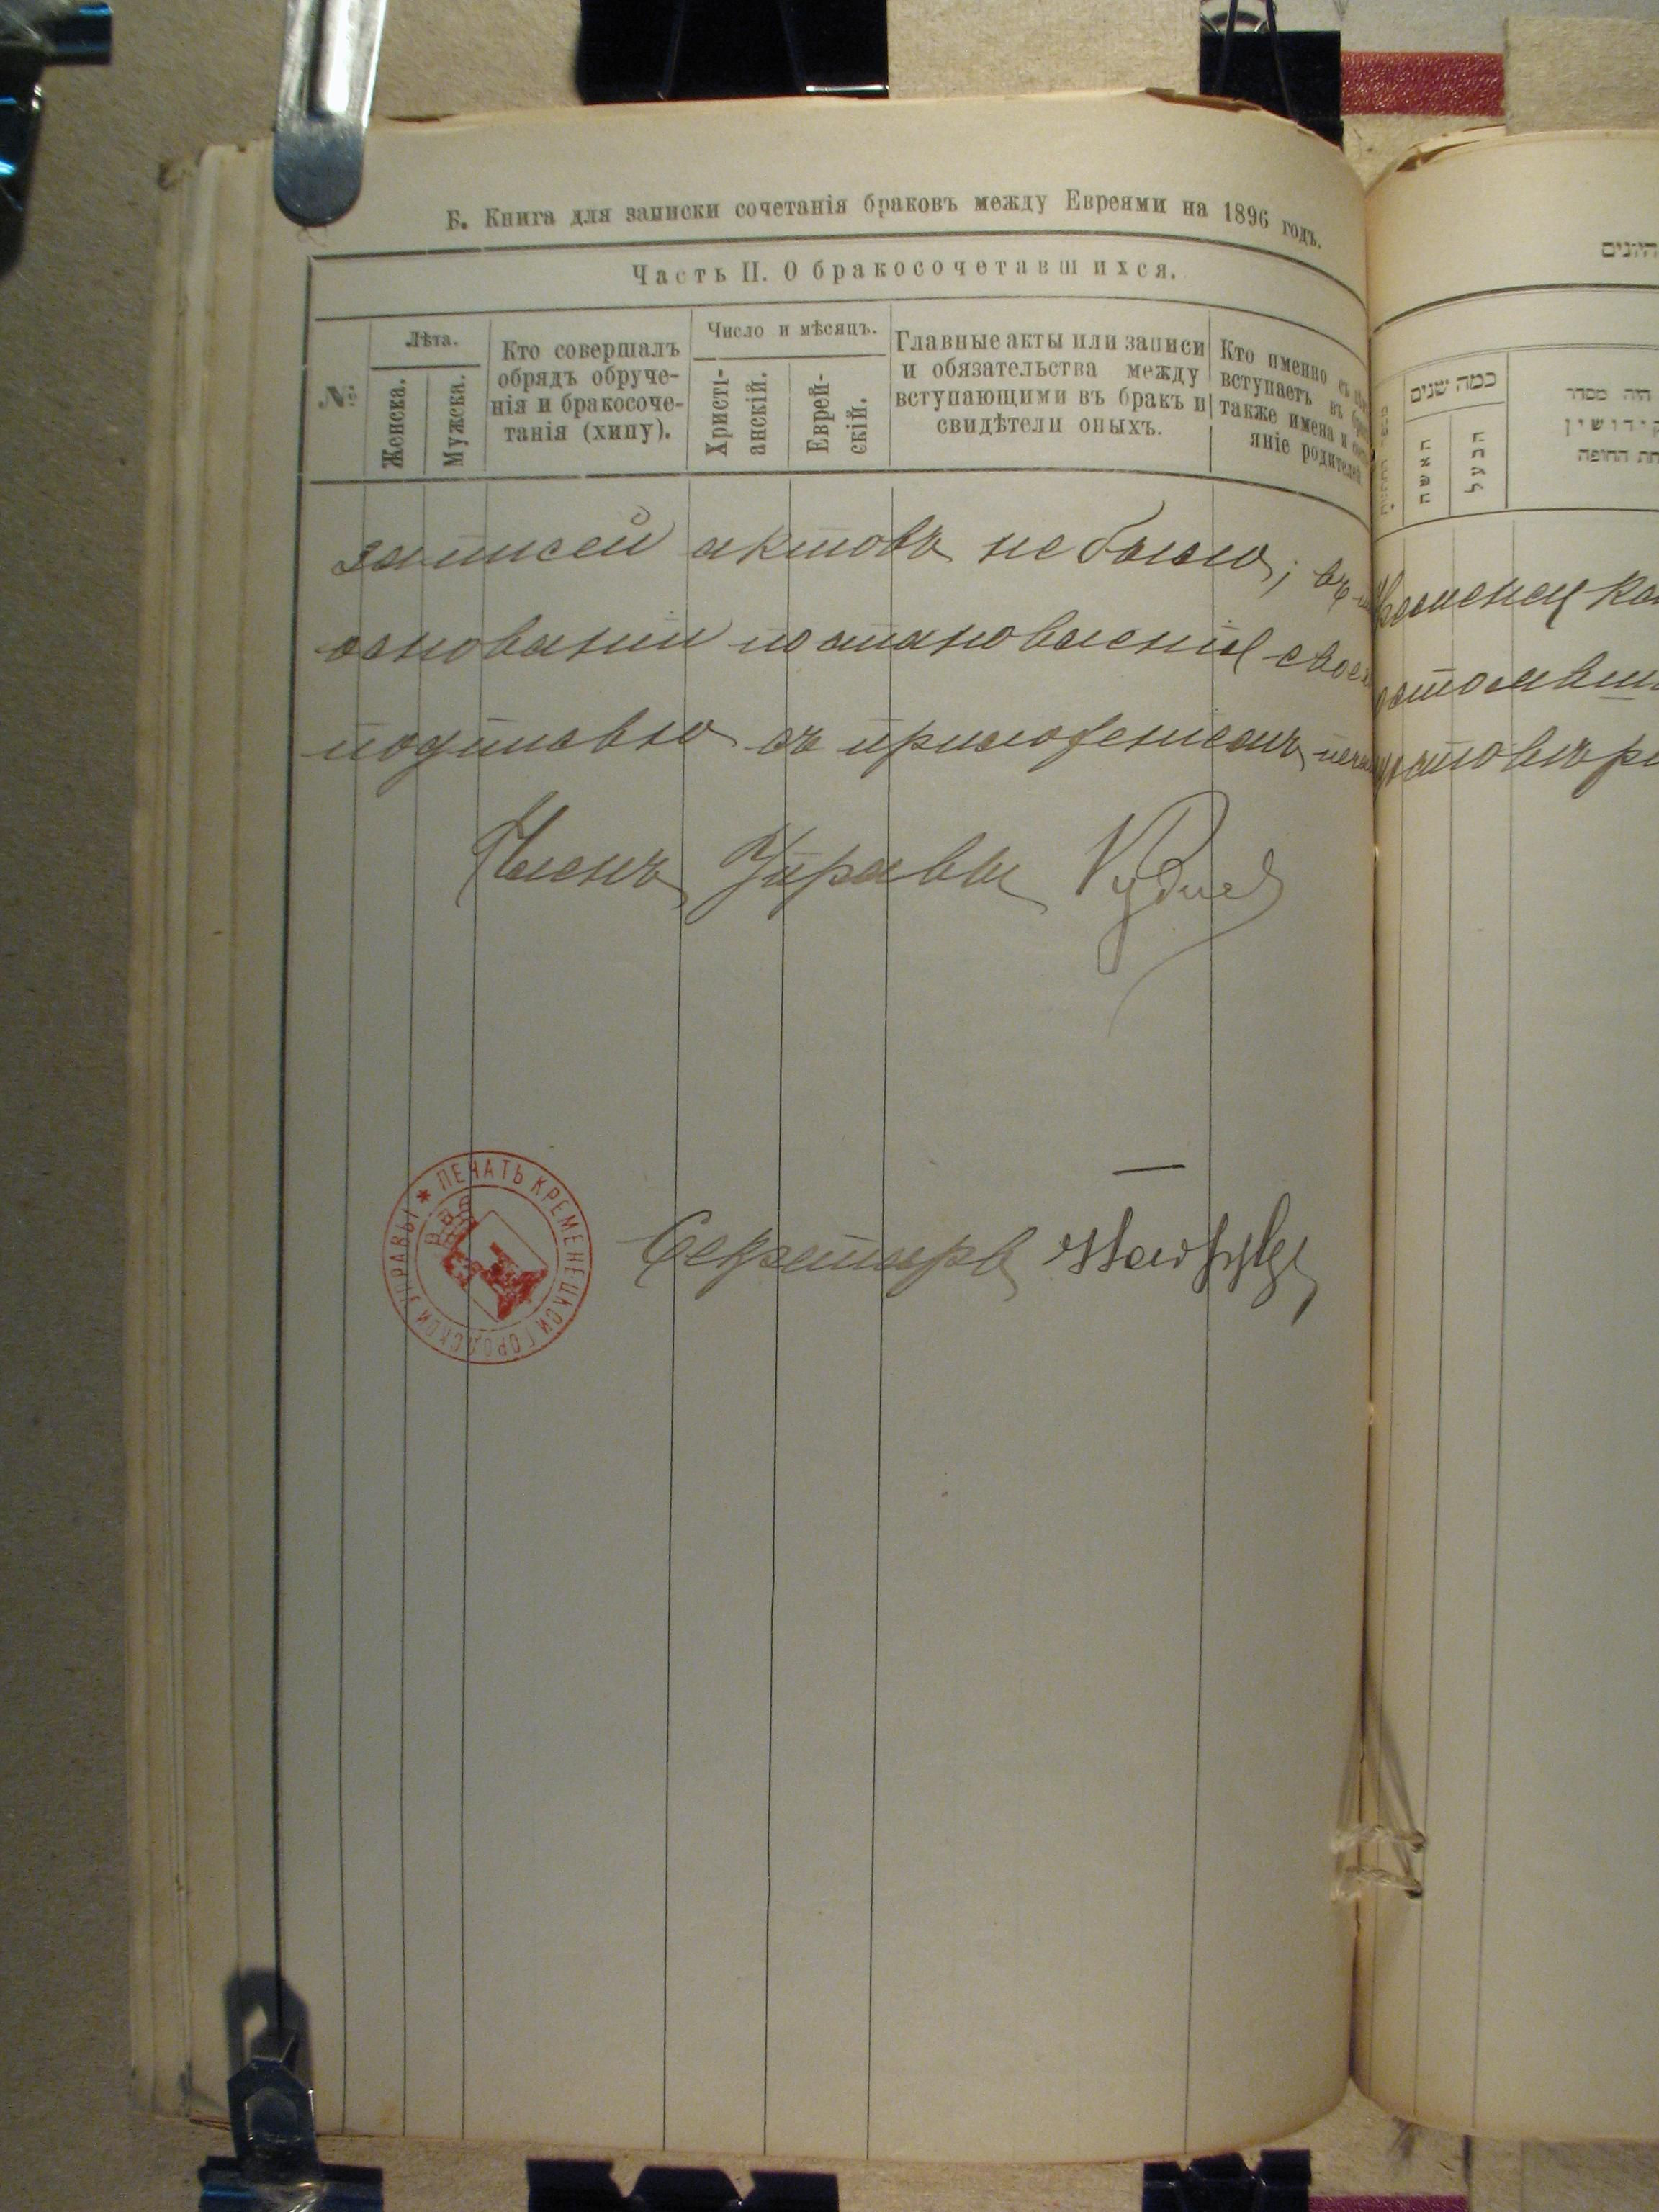 Б. Книга для записки сочетанія браковъ между Евреями на 1896 годъ.
Часть II. О бракосочетавшихся.
№
Лѣта.
Женска.
Мужска.
Кто совершалъ
обрядъ обруче-
нія и бракосоче-
танія (хипу).
Число и мѣсяцъ.
Христі-
анскій.
Еврей-
скій.
Главные акты или записи
и обязательства между
вступающими въ бракъ и
свидѣтели оныхъ.
Кто именно съ
вступаетъ въ
также имена и
яніе родителей
записей актовъ не было; въ
основаніи постановленія
подписью съ приложеніемъ
Членъ Управы
Секретарь
ПЕЧАТЬ КРЕМЕНЕЦКОЙ ГОРОДСКОЙ УПРАВЫ
כמה שנים
האשה
הבעל
היה מסדר
קידושין
החופה